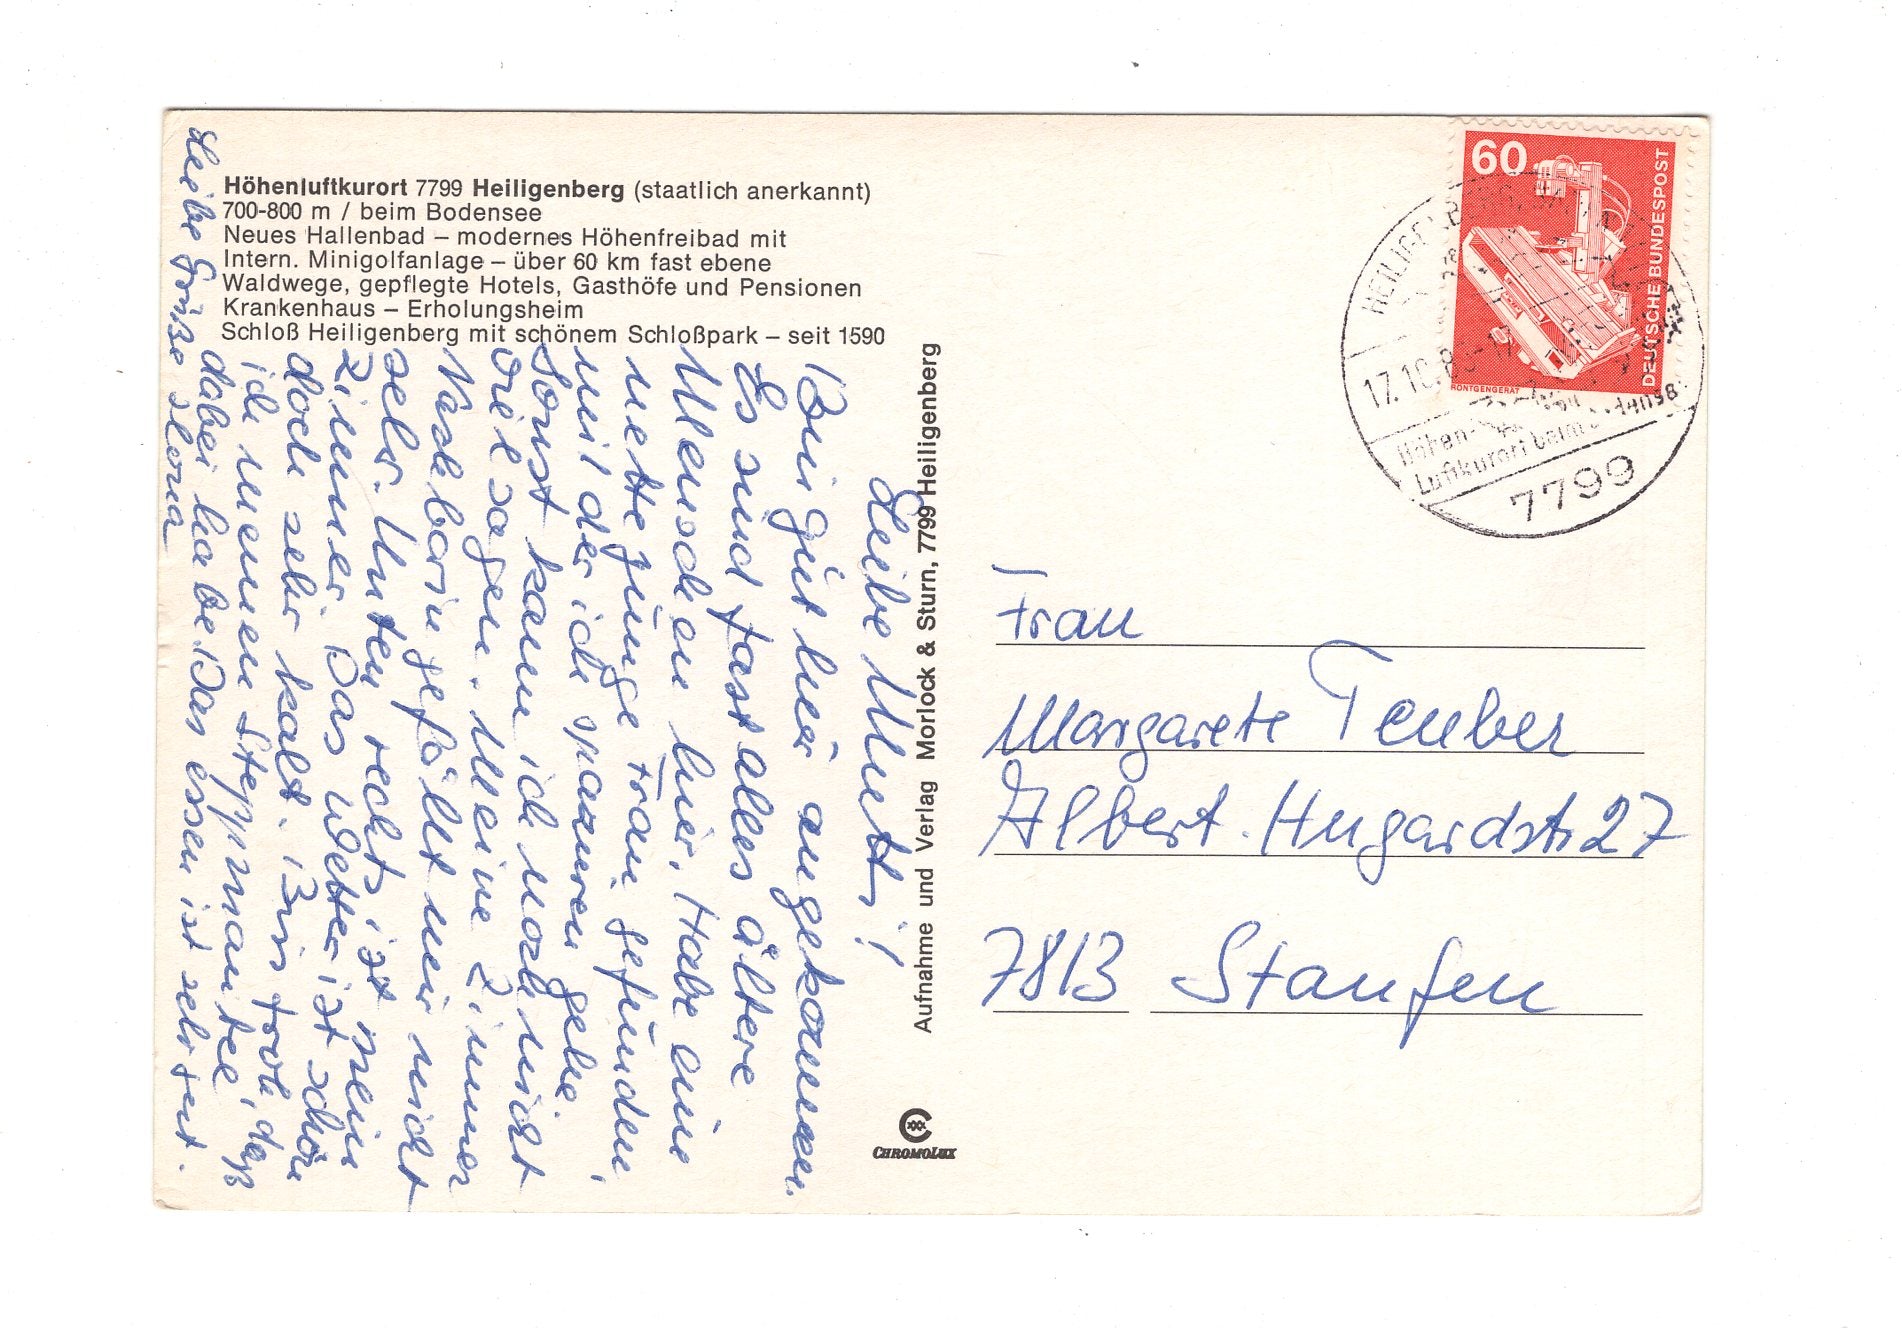 Höhenluftkurort 7799 Heiligenberg (staatlich anerkannt)
700-800 m / beim Bodensee
Neues Hallenbad – modernes Höhenfreibad mit
Intern. Minigolfanlage – über 60 km fast ebene
Waldwege, gepflegte Hotels, Gasthöfe und Pensionen
Krankenhaus – Erholungsheim
Schloß Heiligenberg mit schönem Schloßpark – seit 1590
Leibe Mutti!
Bin gut hier angekommen.
Es sind fast alles ältere
Menschen hier. Habe eine
nette junge Frau gefunden,
mit der ich spazieren gehe.
Sonst kann ich noch nicht
viel sagen. Meine Zimmer
Nachbarin gefällt mir nicht
sehr. Unten rechts ist mein
Zimmer. Das Wetter ist schön
doch sehr kalt. Bin froh, daß
ich meinen Steppmantel
dabei habe. Das essen ist sehr gut.
Leibe Grüße Ilona
Aufnahme und Verlag Morlock & Sturn, 7799 Heiligenberg
CHROMOLUX
60
DEUTSCHE BUNDESPOST
RÖNTGENGERÄT
HEILIGENBERG
17.10.8
Höhen-
Luftkurort beim
7799
Frau
Margarete Teuber
Albert-Hugardstr. 27
7813 Staufen